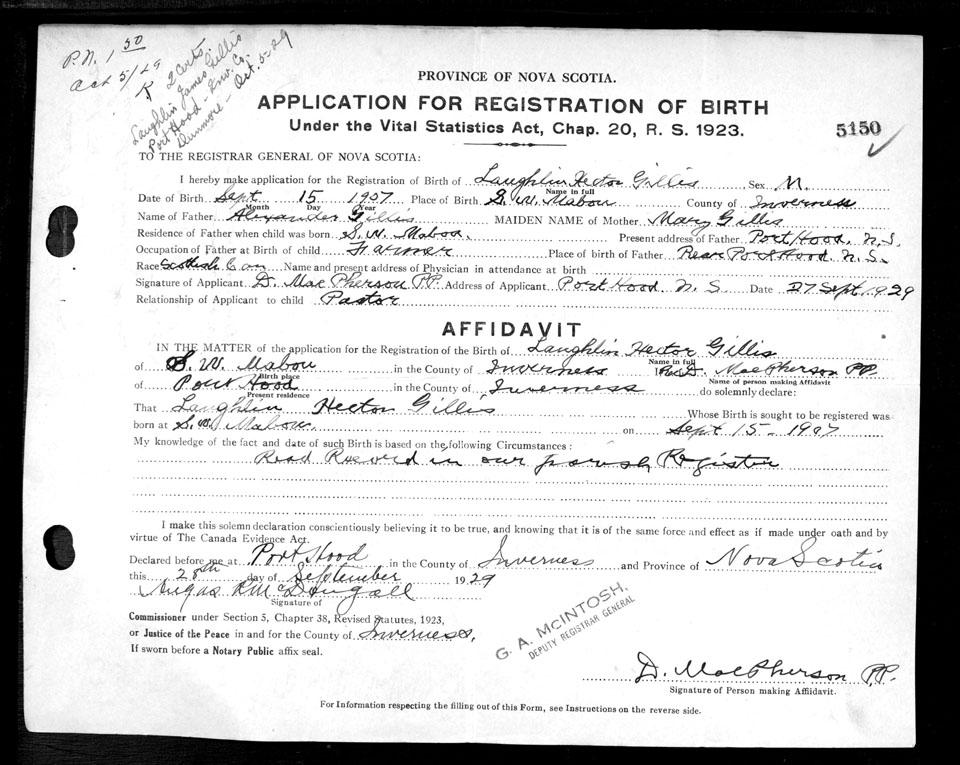 P.N. 1 50
Oct 5/29
R 2 Certs.
Laughlin James Gillis
Port Hood - Inv. Co.
Dunmore - Oct. 5-29
PROVINCE OF NOVA SCOTIA.
APPLICATION FOR REGISTRATION OF BIRTH
Under the Vital Statistics Act, Chap. 20, R. S. 1923.
5150
TO THE REGISTRAR GENERAL OF NOVA SCOTIA:
I hereby make application for the Registration of Birth of Laughlin Hector Gillis Sex M.
Name in full
Date of Birth Sept 15 1907 Place of Birth S. W. Mabou County of Inverness
Month Day Year
Name of Father Alexander Gillis MAIDEN NAME of Mother Mary Gillis
Residence of Father when child was born S. W. Mabou. Present address of Father Port Hood. N.S.
Occupation of Father at Birth of child Farmer Place of birth of Father Rear Port Hood. N.S.
Race Scottish Can Name and present address of Physician in attendance at birth
Signature of Applicant D. MacPherson P.P. Address of Applicant Port Hood N. S. Date 27 Sept 1929
Relationship of Applicant to child Pastor
AFFIDAVIT
IN THE MATTER of the application for the Registration of the Birth of Laughlin Hector Gillis
Name in full
of S. W. Mabou in the County of Inverness I Rev. D. MacPherson PP.
Birth place Name of person making Affidavit
of Port Hood in the County of Inverness do solemnly declare:
Present residence
That Laughlin Hector Gillis Whose Birth is sought to be registered was
born at S. W. Mabou. on Sept 15 - 1907
My knowledge of the fact and date of such Birth is based on the following Circumstances:
Read Record in our parish Register
I make this solemn declaration conscientiously believing it to be true, and knowing that it is of the same force and effect as if made under oath and by
virtue of The Canada Evidence Act.
Declared before me at Port Hood in the County of Inverness and Province of Nova Scotia
this 28th day of September 1929
Angus R McDougall
Signature of
Commissioner under Section 5, Chapter 38, Revised Statutes, 1923,
or Justice of the Peace in and for the County of Inverness,
If sworn before a Notary Public affix seal.
G. A. McINTOSH,
DEPUTY REGISTRAR GENERAL
D. MacPherson P.P.
Signature of Person making Affidavit.
For Information respecting the filling out of this Form, see Instructions on the reverse side.